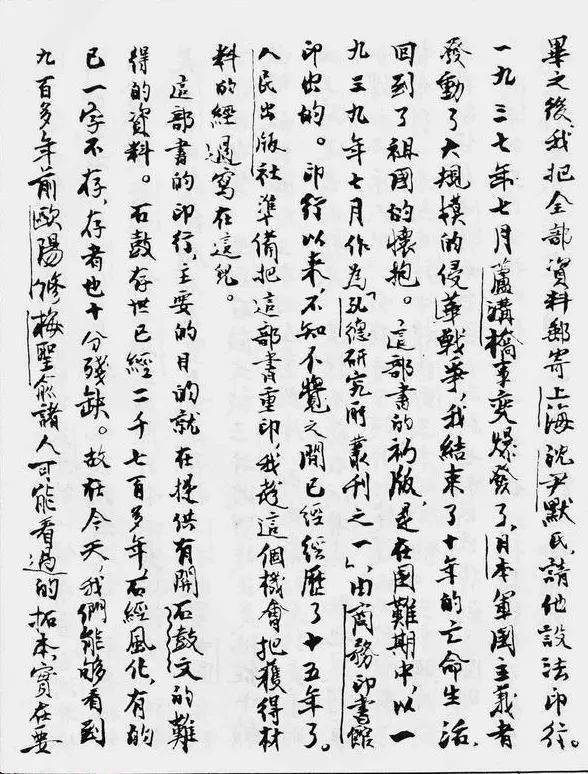 畢之後我把全部資料郵寄上海沈尹默氏，請他設法印行。
一九三七年七月蘆溝橋事變爆發了，日本軍國主義者
發動了大規模的侵華戰爭，我結束了十年的亡命生活，
回到了祖國的懷抱。這部書的初版是在國難期中，以一
九三九年七月作為「孔德研究所叢刊之一」，由商務印書館
印出的。印行以來，不知不覺之間已經經歷了十五年了。
人民出版社準備把這部書重印，我趁這個機會把獲得材
料的經過寫在這兒。
這部書的印行，主要的目的就在提供有關石鼓文的難
得的資料。石鼓存世已經二千七百多年，石經風化，有的
已一字不存，存者也十分殘缺。故在今天，我們能够看到
九百多年前歐陽修梅聖俞諸人可能看過的拓本，實在要